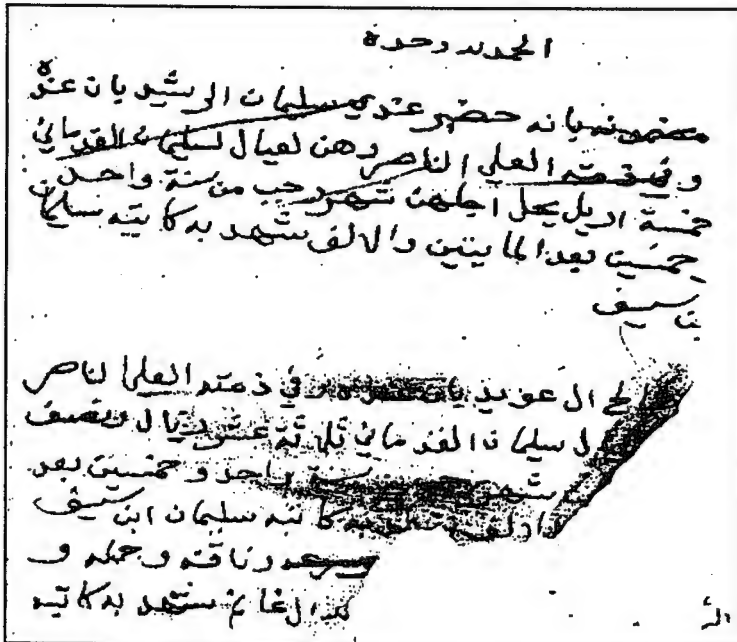 الحمد لله وحده
مضمونه بانه حضر عندي سليمان الرشيد بان عنده
وفي ذمته العلي الناصر وهن لعيال سليمان القدماني
خمسة اريل يحل اجلهن شهر رجب من سنة واحد
خمسين بعد المايتين والالف شهد به كاتبه سليمان
بن سيف
لح ال عويد بان عنده وفي ذمته العلي الناصر
ل سليمان القدماني ثلاثة عشر ريال ونصف
شهر سنة واحد وخمسين بعد
والالف شهد به كاتبه سليمان ابن سيف
وناقته وجمله و
ال غانم شهد به كاتبه